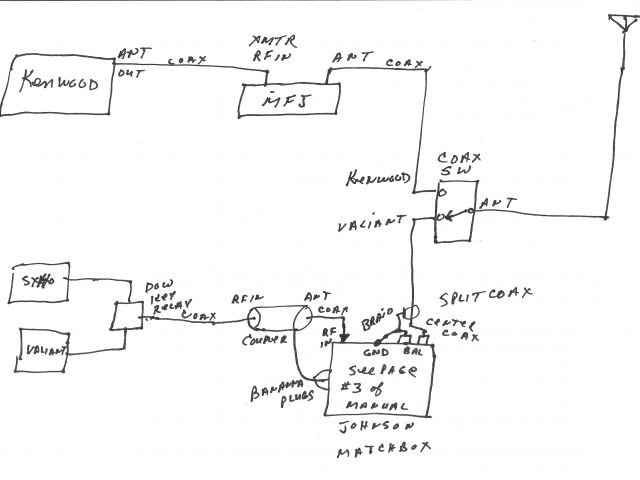 KENWOOD
ANT
OUT
COAX
XMTR
RF IN
MFJ
ANT
COAX
COAX
SW
KENWOOD
VALIANT
ANT
DOW
KEY
RELAY
COAX
VALIANT
RF IN
COUPLER
ANT
COAX
RF
IN
BRAID
SPLIT COAX
CENTER
COAX
GND
BAL
BANANA
PLUGS
SEE PAGE
#3 of
MANUAL
JOHNSON
MATCHBOX